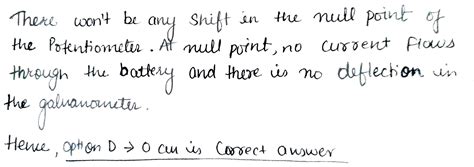 There won't be any shift in the null point of
the Potentiometer. At null point, no current flows
through the battery and there is no deflection in
the galvanometer.
Hence, option D → 0 cm is Correct answer